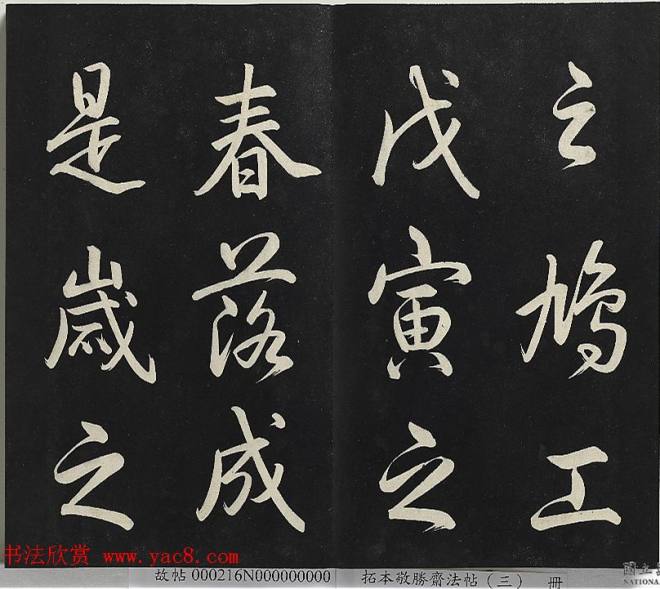 鳩工
戊寅之
春落成
是歲之
书法欣赏 www.yac8.com
故帖 000216N000000000 拓本敬勝齋法帖（三） 冊
國立
NATIONA